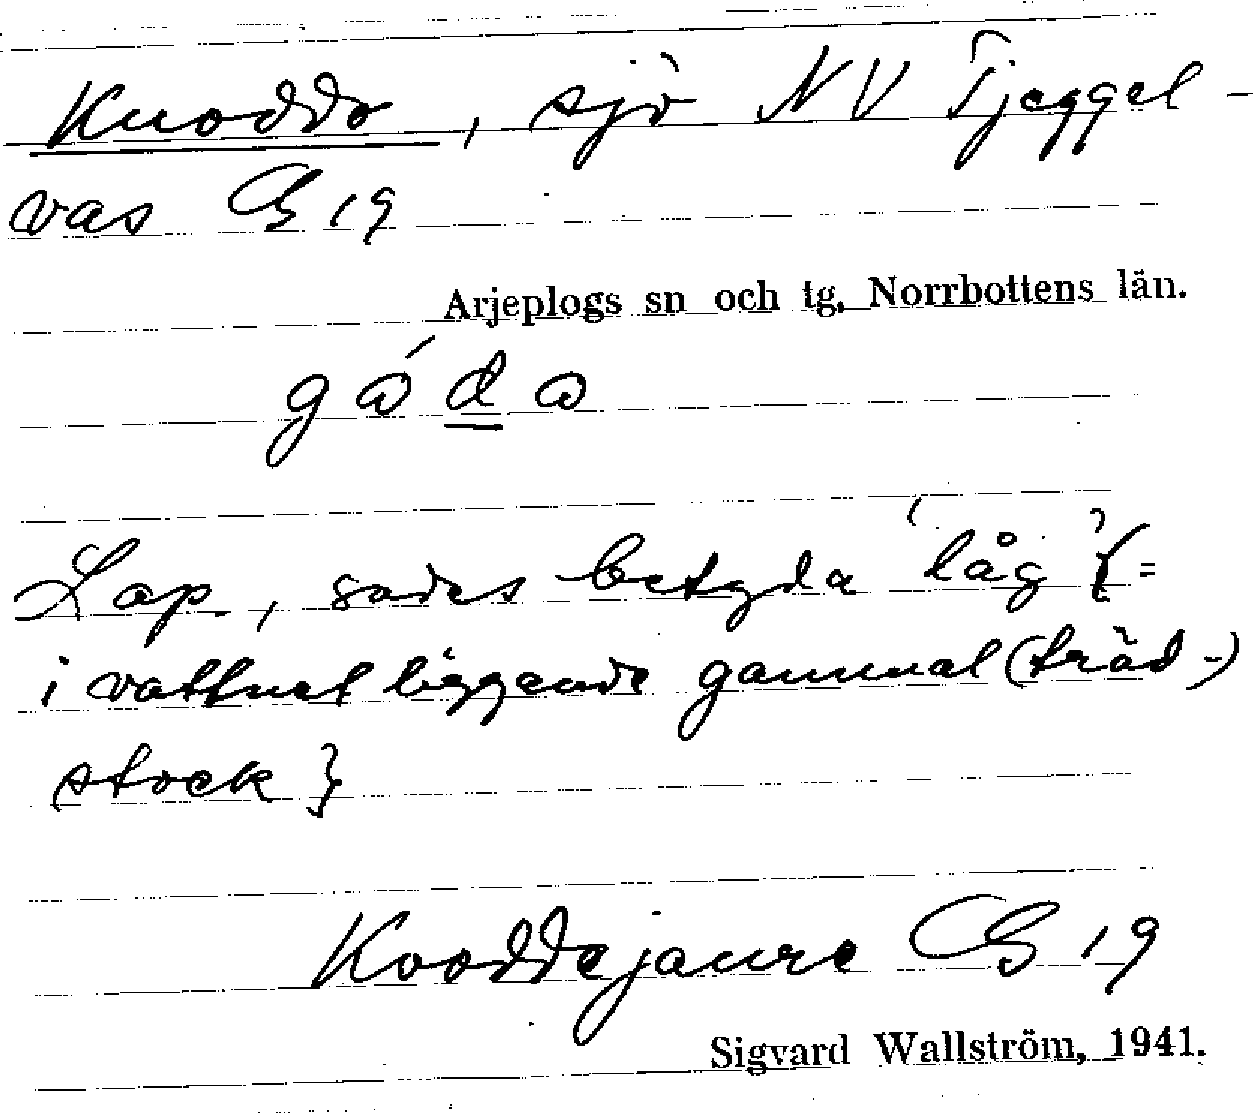 Kuoddo, sjö NV Tjeggel-
vas GS 19
Arjeplogs sn och tg, Norrbottens län.
gåda
Lap, sades betyda 'låg' {=
i vattnet liggande gammal (träd-)
stock}
Kooddejaure GS 19
Sigvard Wallström, 1941.